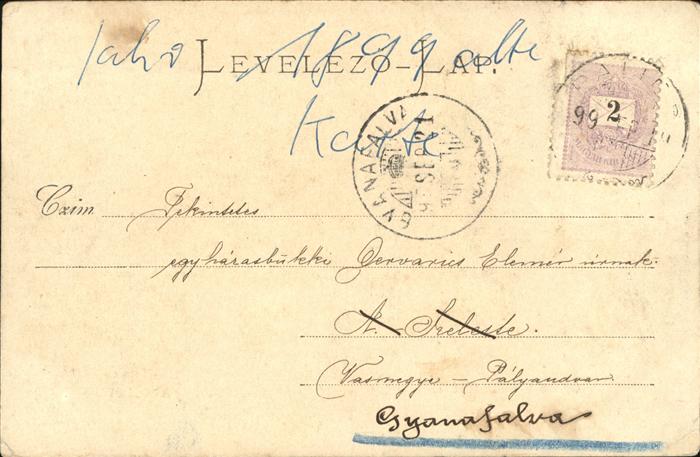 Jahr 1899 alte
LEVELEZŐ-LAP.
Karte
2
99
GYANAFALVA
Czim Tekintetes
egyházasbükki Dervarics Elemér úrnak.
N. Szeleste.
Vasmegye – Pályaudvar
Gyanafalva